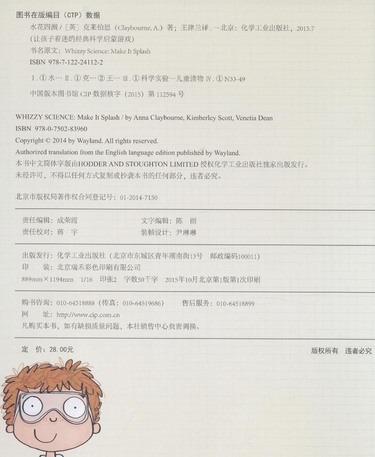 图书在版编目（CIP）数据
水花四溅 /［英］克莱伯恩（Claybourne, A.）著；王津兰译. 一北京：化学工业出版社，2015.7
（让孩子着迷的经典科学启蒙游戏）
书名原文：Whizzy Science: Make It Splash
ISBN 978-7-122-24112-2
Ⅰ.①水… Ⅱ.①克…②王… Ⅲ.①科学实验—儿童读物 Ⅳ.①N33-49
中国版本图书馆CIP数据核字（2015）第112594号
WHIZZY SCIENCE: Make It Splash / by Anna Claybourne, Kimberley Scott, Venetia Dean
ISBN 978-0-7502-83960
Copyright © 2014 by Wayland. All rights reserved.
Authorized translation from the English language edition published by Wayland.
本书中文简体字版由HODDER AND STOUGHTON LIMITED 授权化学工业出版社独家出版发行。
未经许可，不得以任何方式复制或抄袭本书的任何部分，违者必究。
北京市版权局著作权合同登记号：01-2014-7150
责任编辑：成荣霞 文字编辑：陈
责任校对：蒋 宇 装帧设计：尹琳琳
出版发行：化学工业出版社（北京市东城区青年湖南街13号 邮政编码100011）
印 装：北京瑞禾彩色印刷有限公司
889mm×1194mm 1/16 印张2 字数50千字 2015年10月北京第1版第1次印刷
购书咨询：010-64518888（传真：010-64519686） 售后服务：010-64518899
网 址：http://www.cip.com.cn
凡购买本书，如有缺损质量问题，本社销售中心负责调换。
定 价：28.00元 版权所有 违者必究